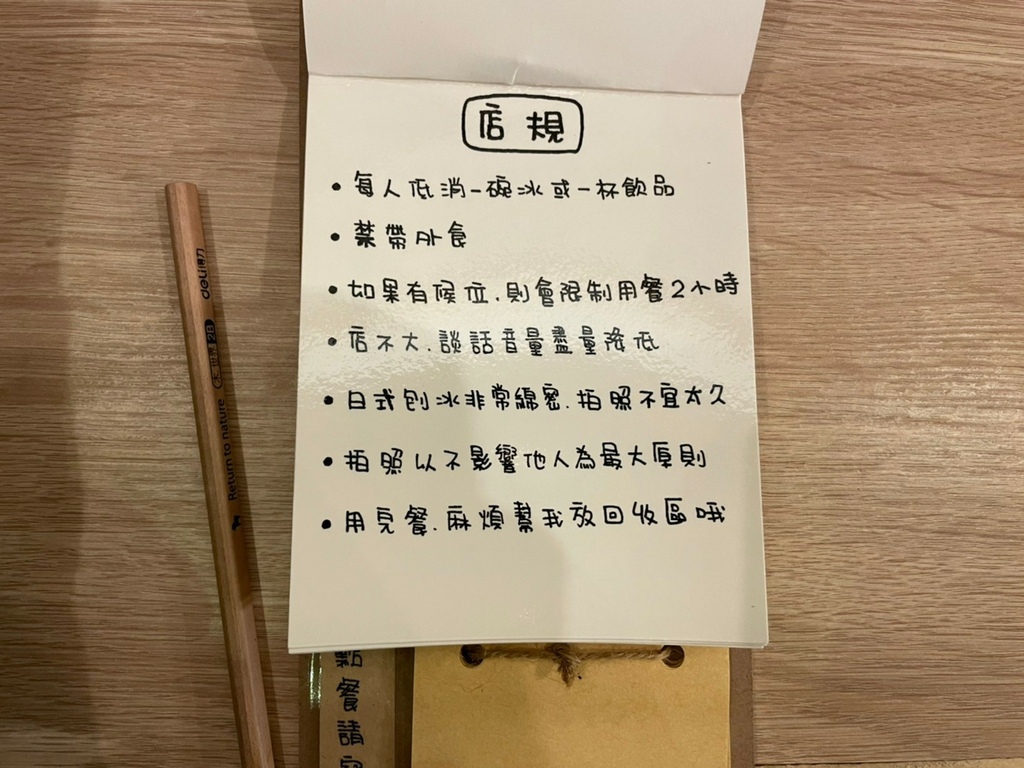 店規
• 每人低消一碗冰或一杯飲品
• 禁帶外食
• 如果有候位，則會限制用餐2小時
• 店不大，談話音量盡量降低
• 日式刨冰非常綿密，拍照不宜太久
• 拍照以不影響他人為最大原則
• 用完餐，麻煩幫我放回收區哦
deli得力
2B
Return to nature
點餐請